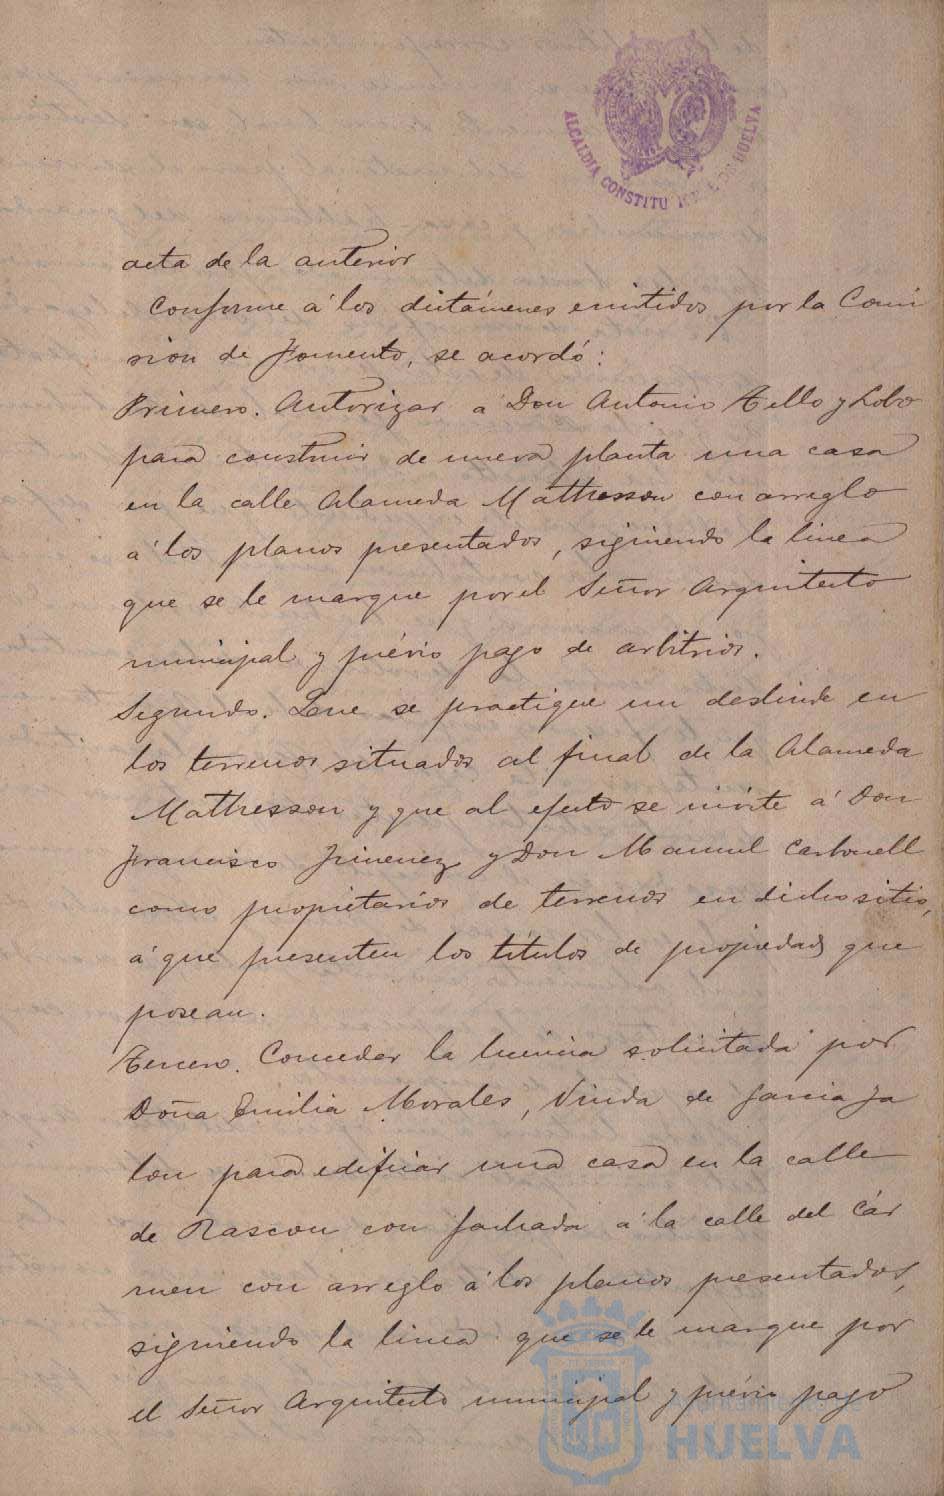 ALCALDIA CONSTITU DE HUELVA
acta de la anterior
Conforme á los dictámenes emitidos por la Comi
sion de Fomento, se acordó:
Primero. Autorizar á Don Antonio Tello y Lobo
para construir de nueva planta una casa
en la calle Alameda Mathesson con arreglo
á los planos presentados, siguiendo la linea
que se le marque por el Señor Arquitecto
municipal y prévio pago de arbitrios.
Segundo. Que se practique un deslinde en
los terrenos situados al final de la Alameda
Mathesson y que al efecto se invite á Don
Francisco Jimenez y Don Manuel Carbonell
como propietarios de terrenos en dicho sitio,
á que presenten los títulos de propiedad que
posean.
Tercero. Conceder la licencia solicitada por
Doña Emilia Morales, Viuda de Garcia Ja
lon para edificar una casa en la calle
de Rascon con fachada á la calle del Cár
men con arreglo á los planos presentados,
siguiendo la linea que se le marque por
el Señor Arquitecto municipal y prévio pago
Ayuntamiento de
HUELVA